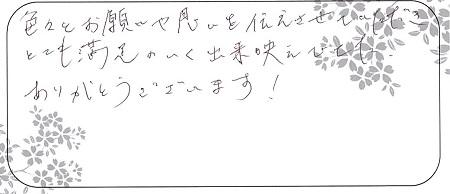 色々とお願いや思いを伝えさせていただき
とても満足のいく出来映えでした。
ありがとうございます！